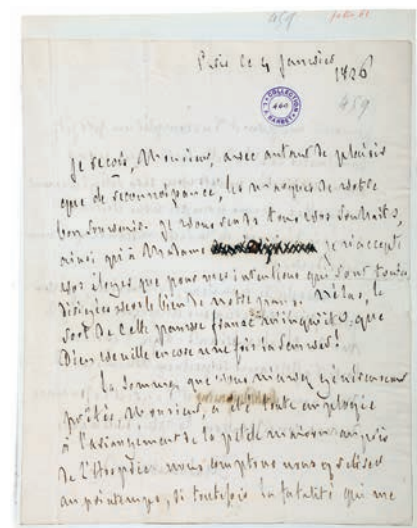 459
Paris ce 4 Janvier
1826
COLLECTION
L. BARBET
459
Je reçois, Monsieur, avec autant de plaisir
que de reconnaissance, les marques de votre
bon souvenir. Je vous rends tous vos souhaits,
ainsi qu'à Madame je n'accepte
vos éloges que pour mes intentions qui sont toutes
dirigées vers le bien de notre pays. Hélas, le
sort de cette pauvre france m'inquiète, que
Dieu veuille encore une fois la sauver!
La somme, que vous m'avez généreusement
prêtée, Monsieur, a été toute employée
à l'arrangement de la petite maison auprès
de l'Hospice. nous comptons nous y
au printemps, si toutefois la fatalité qui me